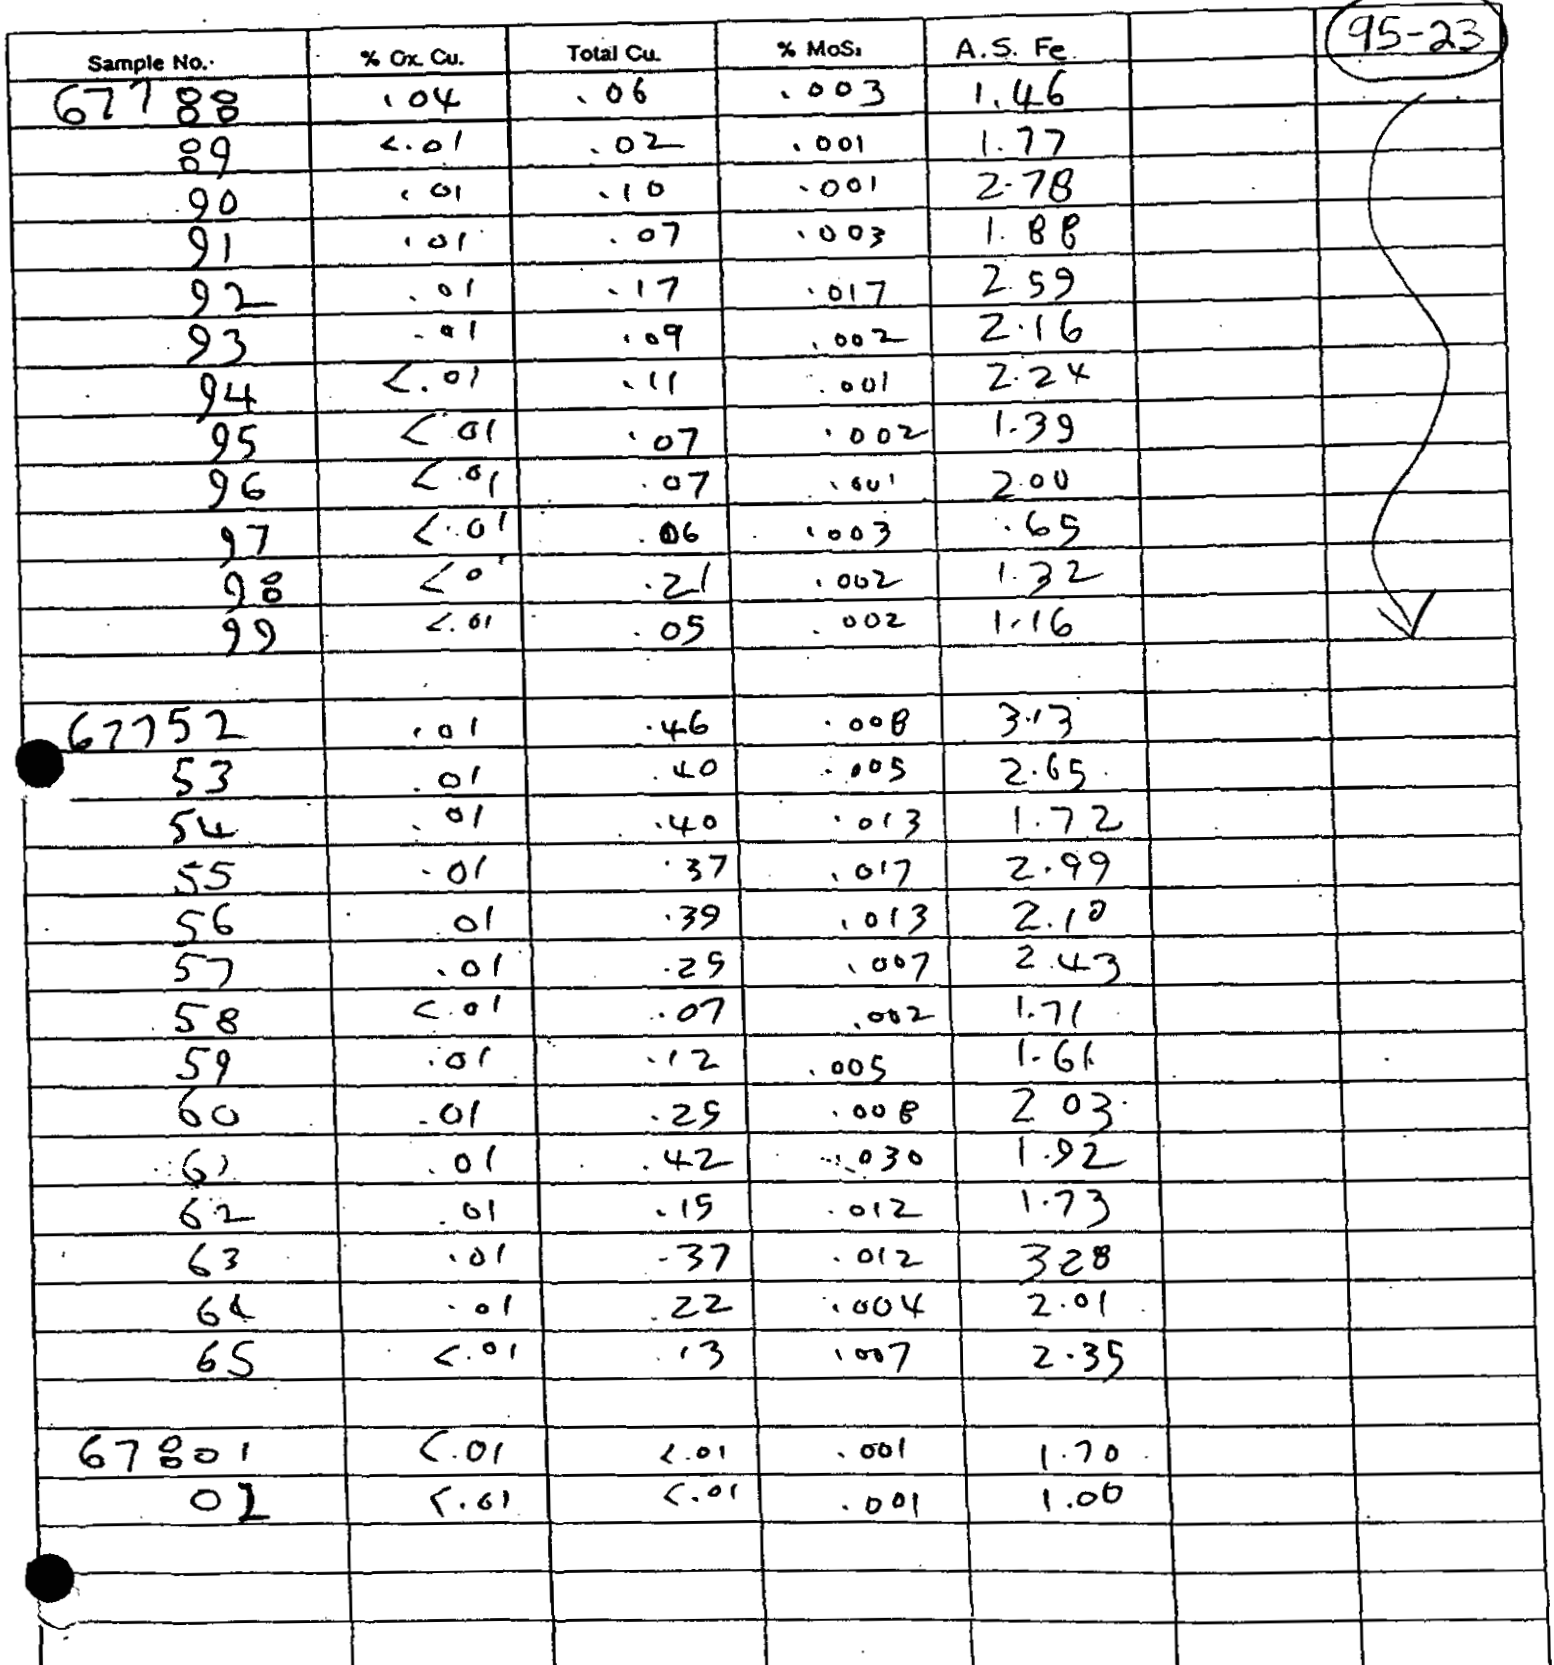 95-23
Sample No. % Ox. Cu. Total Cu. % MoS₂ A.S. Fe
67788 .04 .06 .003 1.46
89 <.01 .02 .001 1.77
90 .01 .10 .001 2.78
91 .01 .07 .003 1.88
92 .01 .17 .017 2.59
93 .01 .09 .002 2.16
94 <.01 .11 .001 2.24
95 <.01 .07 .002 1.39
96 <.01 .07 .001 2.00
97 <.01 .06 .003 .65
98 <.0 .21 .002 1.32
99 <.01 .05 .002 1.16
67752 .01 .46 .008 3.13
53 .01 .40 .005 2.65
54 .01 .40 .013 1.72
55 .01 .37 .017 2.99
56 .01 .39 .013 2.10
57 .01 .25 .007 2.43
58 <.01 .07 .002 1.71
59 .01 .12 .005 1.61
60 .01 .25 .008 2 03
61 .01 .42 .030 1.92
62 .01 .15 .012 1.73
63 .01 .37 .012 3.28
64 .01 .22 .004 2.01
65 <.01 .13 .007 2.35
67801 <.01 <.01 .001 1.70
02 <.01 <.01 .001 1.00